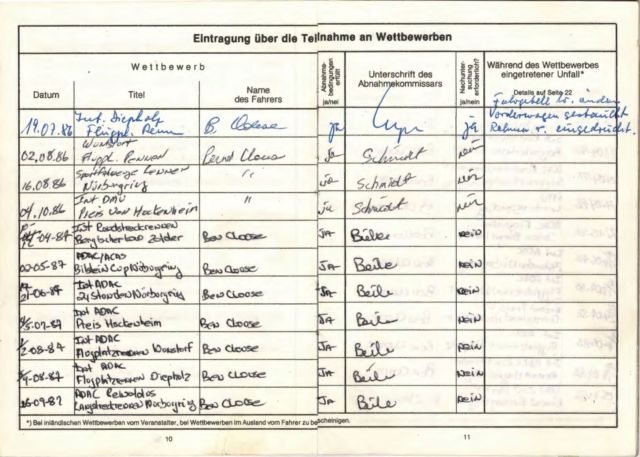 Eintragung über die Teilnahme an Wettbewerben
Wettbewerb
Datum
Titel
Name des Fahrers
Abnahme-bedingungen erfüllt
ja/nei
Unterschrift des Abnahmekommissars
Nachunter-suchung erforderlich?
ja/nein
Während des Wettbewerbes eingetretener Unfall*
Details auf Seite 22
19.07.86 Int. Diepholz B. Cloose ja ja
Flugpl. Renn
Vorderwagen gestaucht
Rahmen v. eingedrückt.
02.08.86 Wunstorf ja Schmidt nein
Flugpl. Rennen
16.08.86 " ja Schmidt nein
Nürburgring
04.10.86 Int DMV " ja Schmidt nein
Preis von Hockenheim
Ben Cloose JA Beile NEIN
Zolder
02-05-87 ADAC/ACAS Ben Cloose JA Beile NEIN
Bilstein Cup Nürburgring
21-06-87 Int ADAC Ben Cloose JA Beile NEIN
24 Stunden Nürburgring
5-07-87 Int ADAC Ben Cloose JA Beile NEIN
Preis Hockenheim
2-08-87 Int ADAC Ben Cloose JA Beile NEIN
Flugplatzrennen Wunstorf
9-08-87 Int ADAC Ben Cloose JA Beile NEIN
Flugplatzrennen Diepholz
26-09-87 ADAC Reinoldus Ben Cloose JA Beile NEIN
Langstreckenrennen Nürburgring
*) Bei inländischen Wettbewerben vom Veranstalter, bei Wettbewerben im Ausland vom Fahrer zu bescheinigen.
10
11